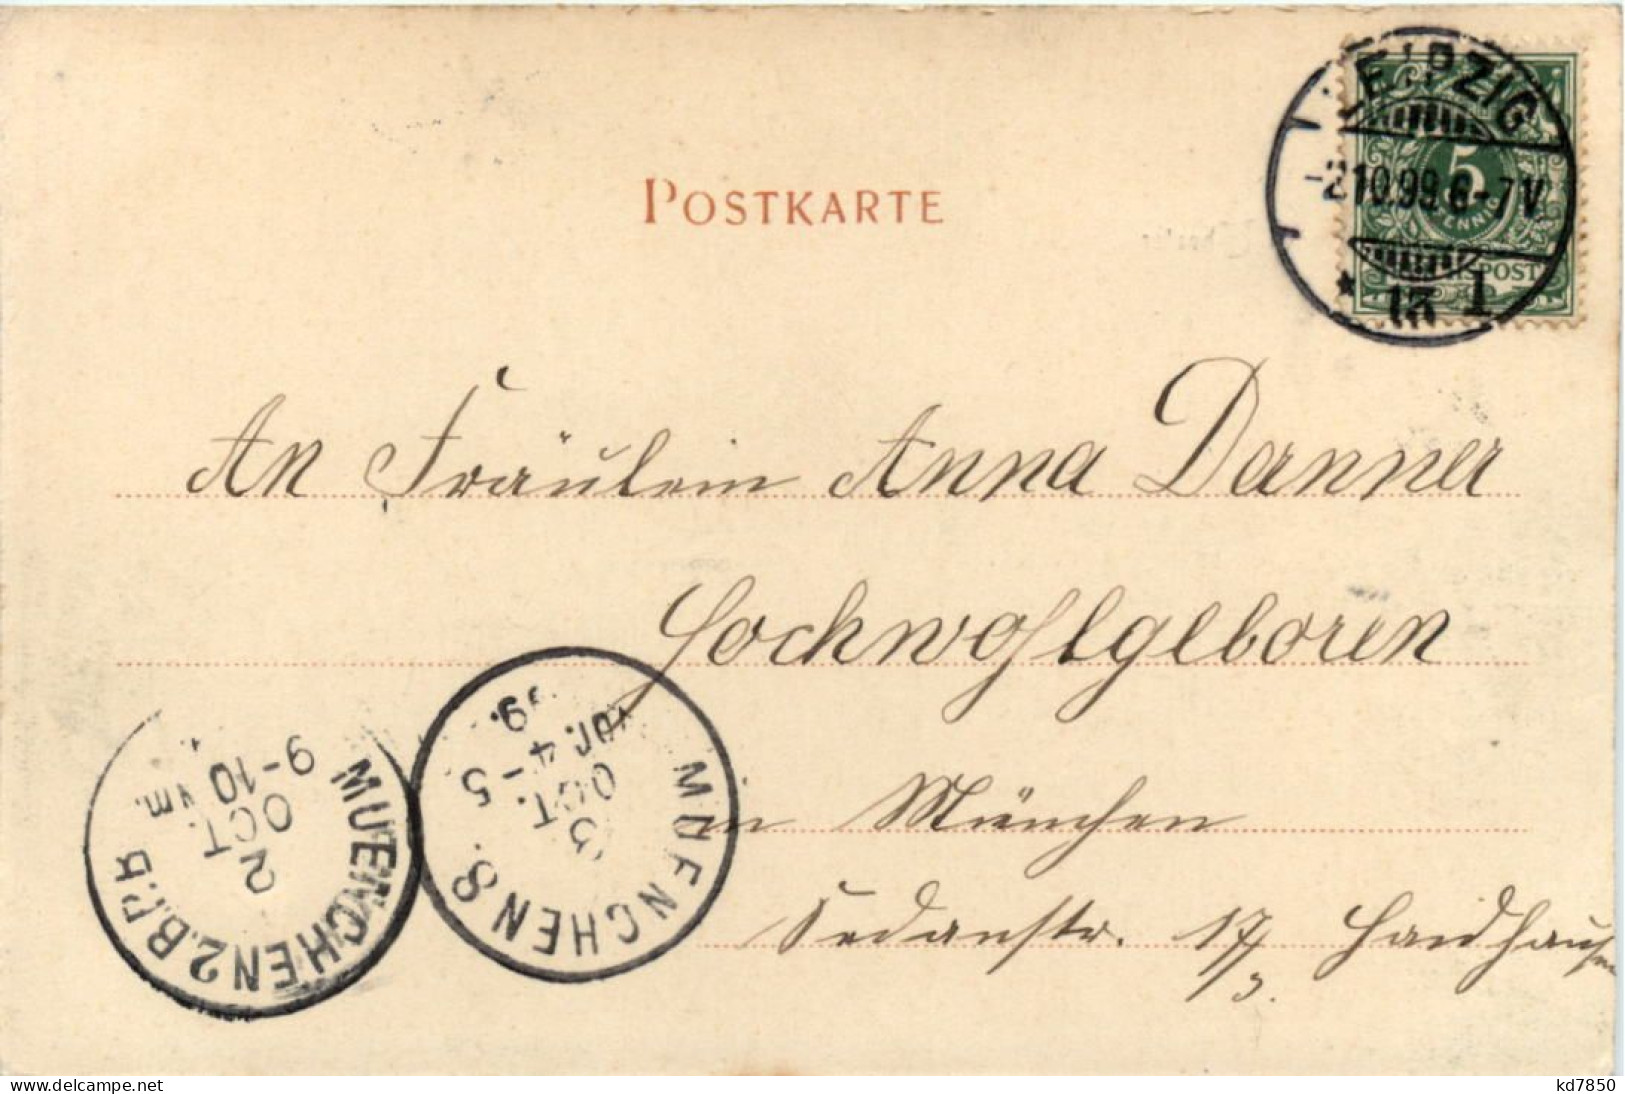 LEIPZIG
-2.10.99.6-7V.
* 13 1
5
PFENNIG
REICHSPOST
POSTKARTE
An Fräulein Anna Danner
Hochwohlgeboren
in München
Sedanstr. 17/3. Haidhausen
MUENCHEN 2.B.P.
2
OCT.
9-10
Vm.
MUENCHEN 8.
3
OCT.
4-5
99.
delcampe.net
kd7850